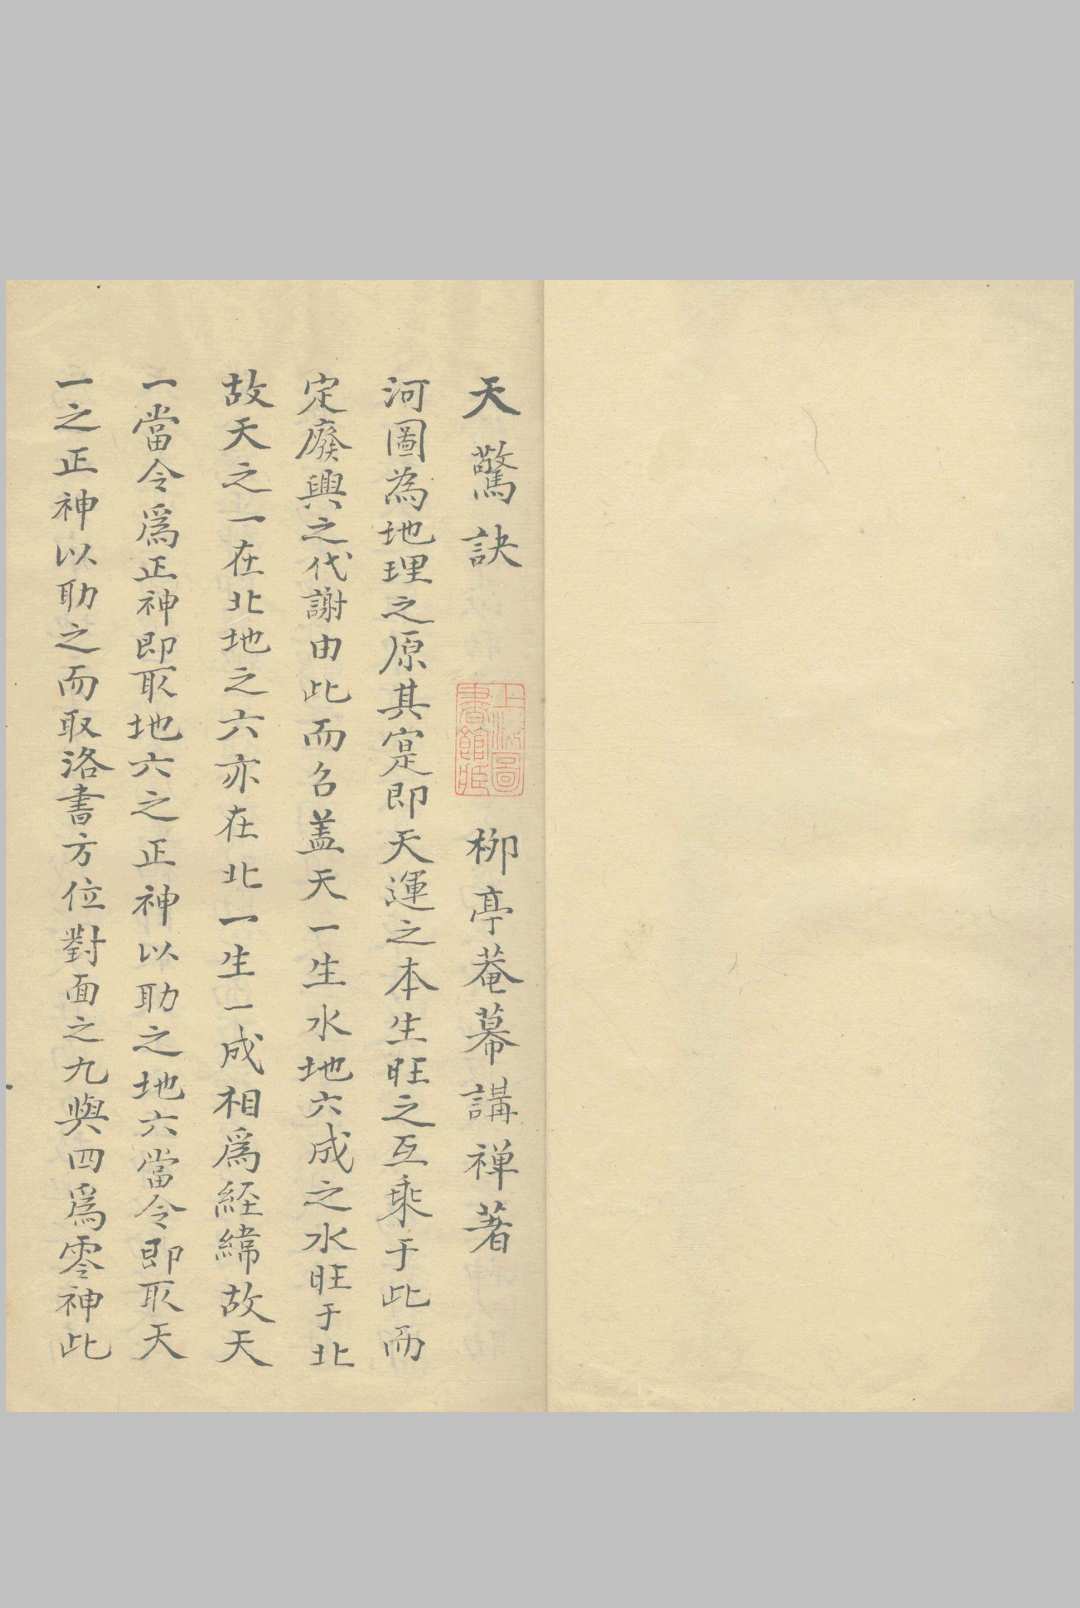 天驚訣
上海圖書館藏
柳亭菴幕講禅著
河圖為地理之原其寔即天運之本生旺之互乘于此而
定廢興之代謝由此而名蓋天一生水地六成之水旺于北
故天之一在北地之六亦在北一生一成相爲経緯故天
一當令爲正神即取地六之正神以助之地六當令即取天
一之正神以助之而取洛書方位對面之九與四爲零神此